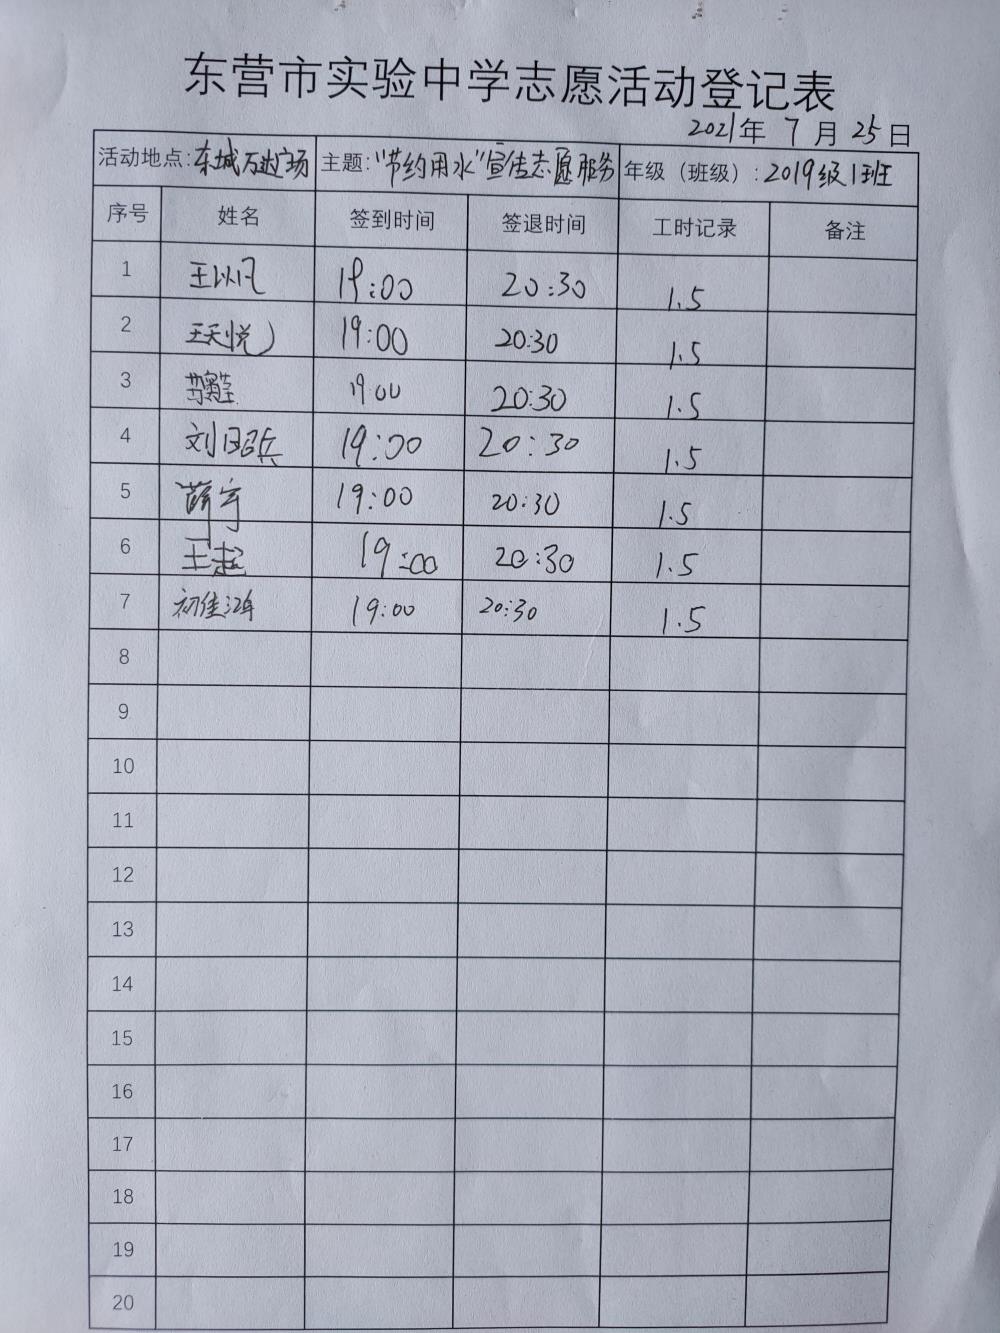 东营市实验中学志愿活动登记表
2021年 7 月 25 日
活动地点:东城万达广场 主题:"节约用水"宣传志愿服务 年级（班级）: 2019级1班
序号 姓名 签到时间 签退时间 工时记录 备注
1 王以凡 19:00 20:30 1.5
2 王天悦 19:00 20:30 1.5
3 19:00 20:30 1.5
4 刘昭兵 19:00 20:30 1.5
5 薛宇 19:00 20:30 1.5
6 王超 19:00 20:30 1.5
7 初佳 19:00 20:30 1.5
8
9
10
11
12
13
14
15
16
17
18
19
20